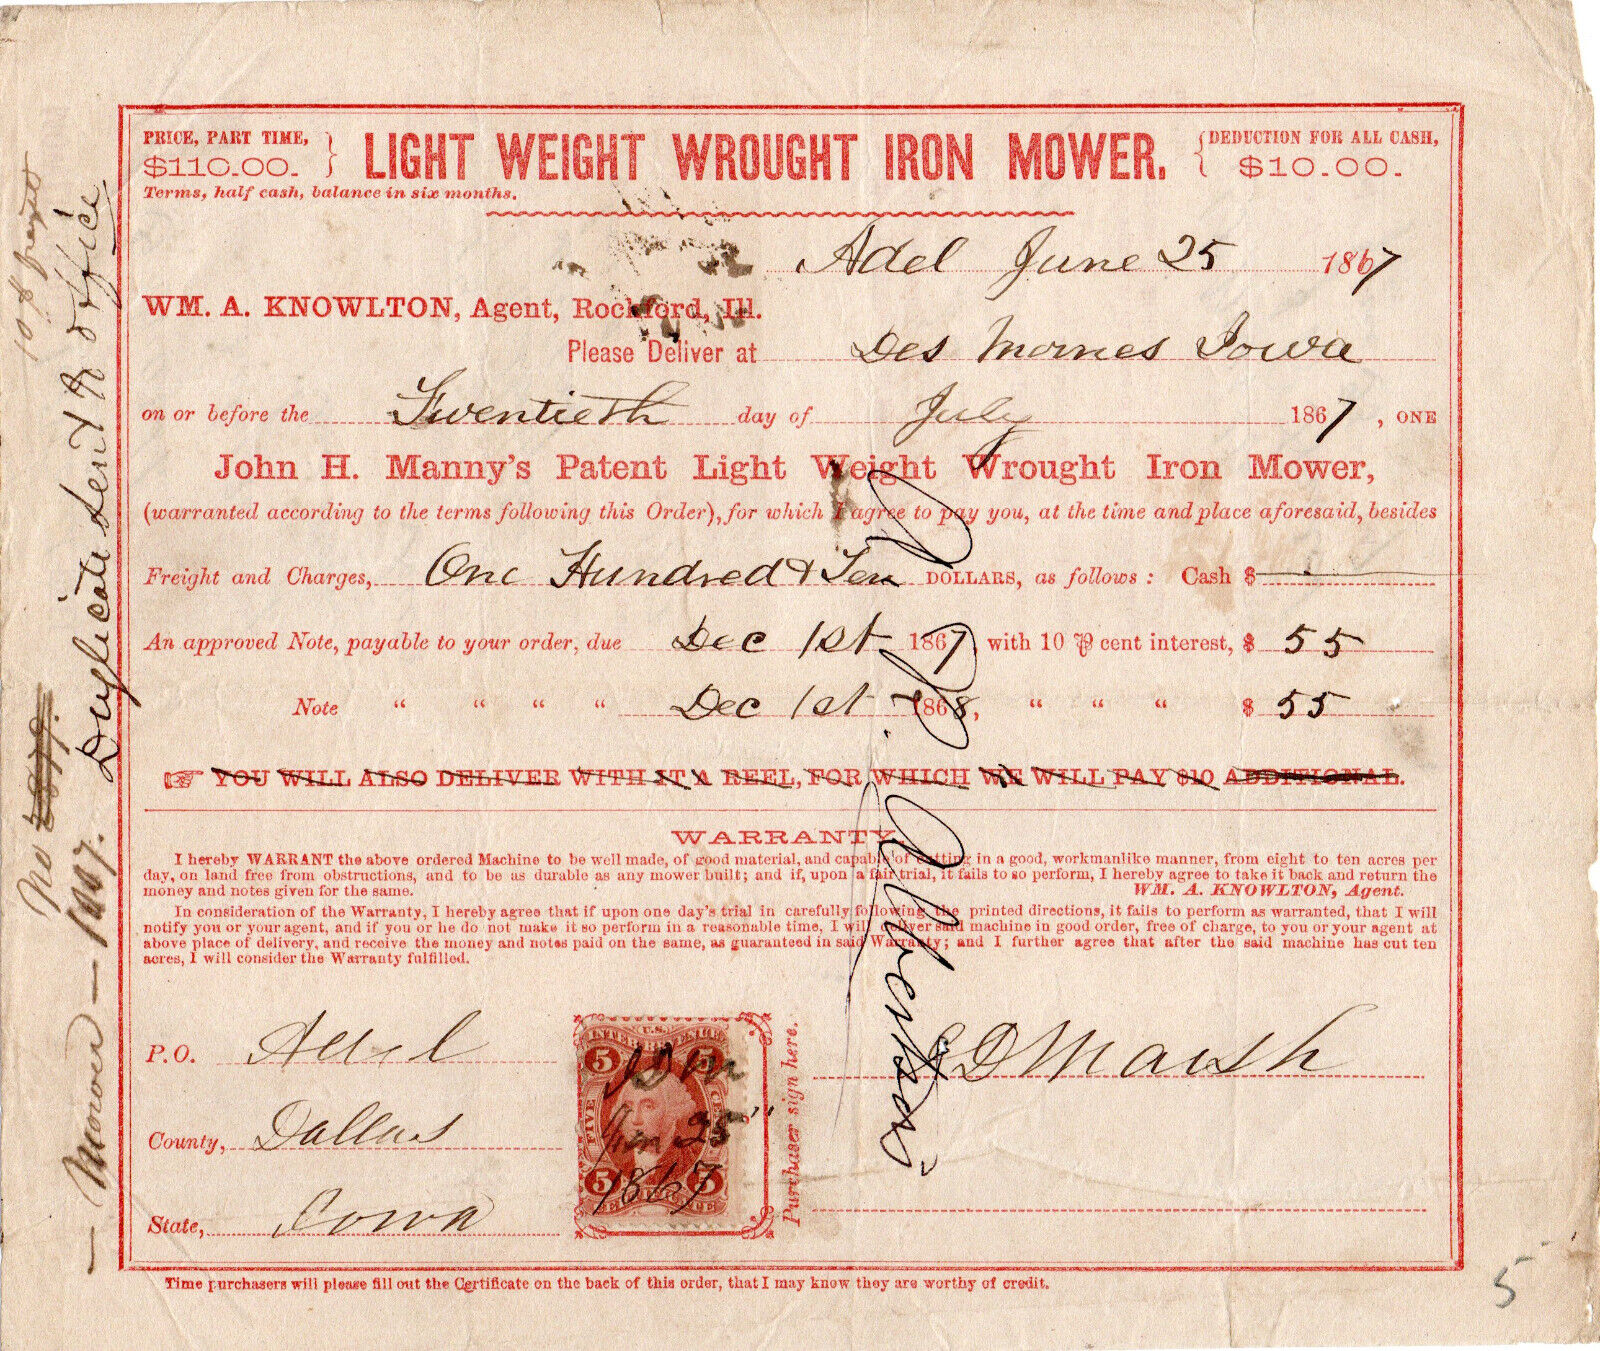 PRICE, PART TIME,
$110.00.
Terms, half cash, balance in six months.
LIGHT WEIGHT WROUGHT IRON MOWER.
DEDUCTION FOR ALL CASH,
$10.00.
Adel June 25 1867
WM. A. KNOWLTON, Agent, Rockford, Ill.
Please Deliver at Des Moines Iowa
on or before the Twentieth day of July 1867, ONE
John H. Manny's Patent Light Weight Wrought Iron Mower,
(warranted according to the terms following this Order), for which I agree to pay you, at the time and place aforesaid, besides
Freight and Charges, One Hundred & Ten DOLLARS, as follows: Cash $
An approved Note, payable to your order, due Dec 1st 1867 with 10 ⅌ cent interest, $ 55
Note " " " " Dec 1st 1868, " " " $ 55
☞ YOU WILL ALSO DELIVER WITH IT A REEL, FOR WHICH WE WILL PAY $10 ADDITIONAL.
WARRANTY
I hereby WARRANT the above ordered Machine to be well made, of good material, and capable of cutting in a good, workmanlike manner, from eight to ten acres per
day, on land free from obstructions, and to be as durable as any mower built; and if, upon a fair trial, it fails to so perform, I hereby agree to take it back and return the
money and notes given for the same.
WM. A. KNOWLTON, Agent.
In consideration of the Warranty, I hereby agree that if upon one day's trial in carefully following the printed directions, it fails to perform as warranted, that I will
notify you or your agent, and if you or he do not make it so perform in a reasonable time, I will deliver said machine in good order, free of charge, to you or your agent at
above place of delivery, and receive the money and notes paid on the same, as guaranteed in said Warranty; and I further agree that after the said machine has cut ten
acres, I will consider the Warranty fulfilled.
P.O. Adel
County, Dallas
State, Iowa
U.S.
INTER. REVENUE
5 5
FIVE CENTS
5 5
J D M
Jun 25"
1867
Purchaser sign here.
J D Marsh
Time purchasers will please fill out the Certificate on the back of this order, that I may know they are worthy of credit.
Duplicate sent to office
No
Mower — 1107.
5